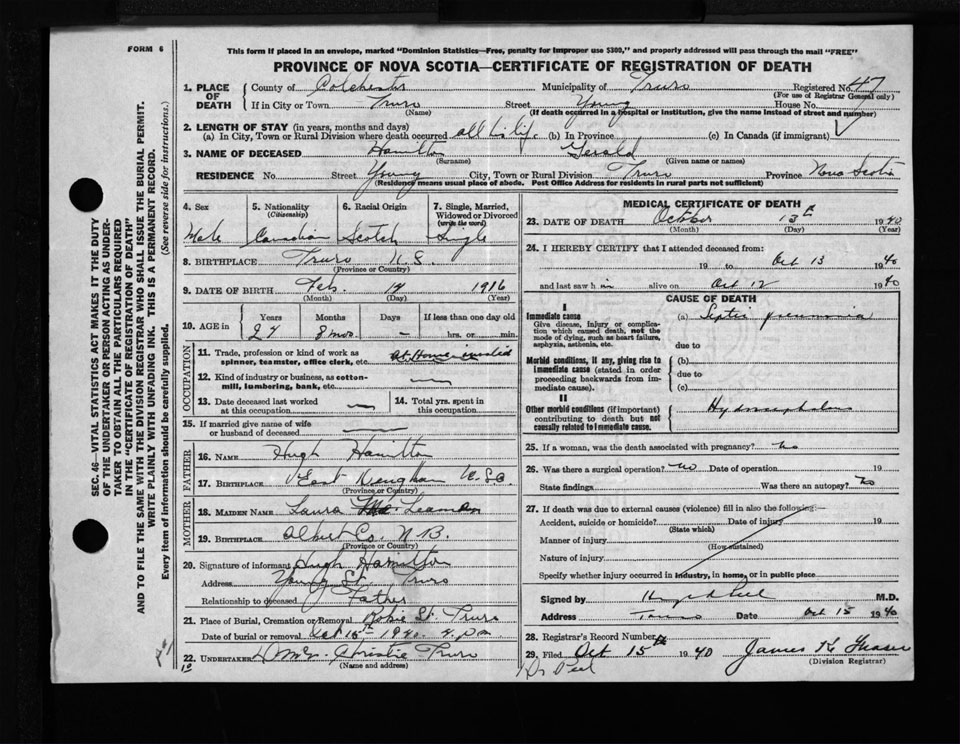 FORM 6
This form if placed in an envelope, marked "Dominion Statistics—Free, penalty for improper use $300," and properly addressed will pass through the mail "FREE"
PROVINCE OF NOVA SCOTIA—CERTIFICATE OF REGISTRATION OF DEATH
1. PLACE OF DEATH County of Colchester Municipality of Truro Registered No. 47
(For use of Registrar General only)
If in City or Town Truro Street Young House No.
(Name) (If death occurred in a hospital or institution, give the name instead of street and number)
2. LENGTH OF STAY (in years, months and days)
(a) In City, Town or Rural Division where death occurred all his life (b) In Province (c) In Canada (if immigrant)
3. NAME OF DECEASED Hamilton Gerald
(Surname) (Given name or names)
RESIDENCE No. Street Young City, Town or Rural Division Truro Province Nova Scotia
(Residence means usual place of abode. Post Office Address for residents in rural parts not sufficient)
4. Sex 5. Nationality (Citizenship) 6. Racial Origin 7. Single, Married, Widowed or Divorced (write the word)
Male Canadian Scotch Single
8. BIRTHPLACE Truro N.S.
(Province or Country)
9. DATE OF BIRTH Feb. 14 1916
(Month) (Day) (Year)
10. AGE in Years Months Days If less than one day old
24 8 mos – hrs. or min.
OCCUPATION
11. Trade, profession or kind of work as spinner, teamster, office clerk, etc. At Home invalid
12. Kind of industry or business, as cotton-mill, lumbering, bank, etc. —
13. Date deceased last worked at this occupation — 14. Total yrs. spent in this occupation
15. If married give name of wife or husband of deceased —
FATHER
16. NAME Hugh Hamilton
17. BIRTHPLACE East
(Province or Country)
MOTHER
18. MAIDEN NAME Laura
19. BIRTHPLACE Albert Co. N.B.
(Province or Country)
20. Signature of informant Hugh Hamilton
Address Young St. Truro
Relationship to deceased Father
21. Place of Burial, Cremation or Removal Robie St. Truro
Date of burial or removal Oct 15th 1940 4 p.m
22. UNDERTAKER Christie Truro
(Name and address)
MEDICAL CERTIFICATE OF DEATH
23. DATE OF DEATH October 13th 1940
(Month) (Day) (Year)
24. I HEREBY CERTIFY that I attended deceased from:
19 to Oct 13 1940
and last saw him alive on Oct 12 1940
CAUSE OF DEATH
I
Immediate cause (a) Septic pneumonia
Give disease, injury or complication which caused death, not the mode of dying, such as heart failure, asphyxia, asthenia, etc. due to
Morbid conditions, if any, giving rise to immediate cause (stated in order proceeding backwards from immediate cause). (b) due to (c)
II
Other morbid conditions (if important) contributing to death but not causally related to immediate cause. Hydrocephalus
25. If a woman, was the death associated with pregnancy? no
26. Was there a surgical operation? no Date of operation 19
State findings Was there an autopsy? no
27. If death was due to external causes (violence) fill in also the following:—
Accident, suicide or homicide? Date of injury 19
(State which)
Manner of injury
(How sustained)
Nature of injury
Specify whether injury occurred in industry, in home, or in public place
Signed by M.D.
Address Truro Oct 15 1940
28. Registrar's Record Number
29. Filed Oct 15th 1940 James K Fraser
(Division Registrar)
Dr Peel
SEC. 46—VITAL STATISTICS ACT MAKES IT THE DUTY
OF THE UNDERTAKER OR PERSON ACTING AS UNDER-
TAKER TO OBTAIN ALL THE PARTICULARS REQUIRED
IN THE "CERTIFICATE OF REGISTRATION OF DEATH"
AND TO FILE THE SAME WITH THE DIVISION REGISTRAR WHO SHALL ISSUE THE BURIAL PERMIT.
WRITE PLAINLY WITH UNFADING INK. THIS IS A PERMANENT RECORD.
Every item of information should be carefully supplied. (See reverse side for instructions.)